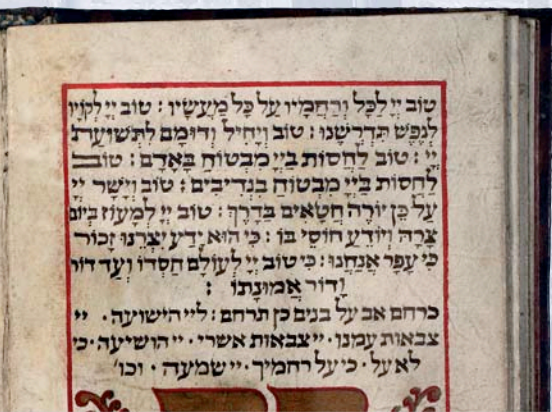 טוֹב יְיָ לַכֹּל וְרַחֲמָיו עַל כָּל מַעֲשָׂיו : טוֹב יְיָ לְקֹוָיו
לְנֶפֶשׁ תִּדְרְשֶׁנּוּ : טוֹב וְיָחִיל וְדוּמָם לִתְשׁוּעַת
יְיָ : טוֹב לַחֲסוֹת בַּייָ מִבְּטוֹחַ בָּאָדָם : טוֹב
לַחֲסוֹת בַּייָ מִבְּטוֹחַ בִּנְדִיבִים : טוֹב וְיָשָׁר יְיָ
עַל כֵּן יוֹרֶה חַטָּאִים בַּדָּרֶךְ : טוֹב יְיָ לְמָעוֹז בְּיוֹם
צָרָה וְיוֹדֵעַ חוֹסֵי בוֹ : כִּי הוּא יָדַע יִצְרֵנוּ זָכוּר
כִּי עָפָר אֲנָחְנוּ : כִּי טוֹב יְיָ לְעוֹלָם חַסְדּוֹ וְעַד דּוֹר
וָדוֹר אֱמוּנָתוֹ :
כרחם אב על בנים כן תרחם : ליי הישועה · יי
צבאות עמנו · יי צבאות אשרי · יי הושיעה · כי
לא על · כי על רחמיך · יי שמעה · וכו'